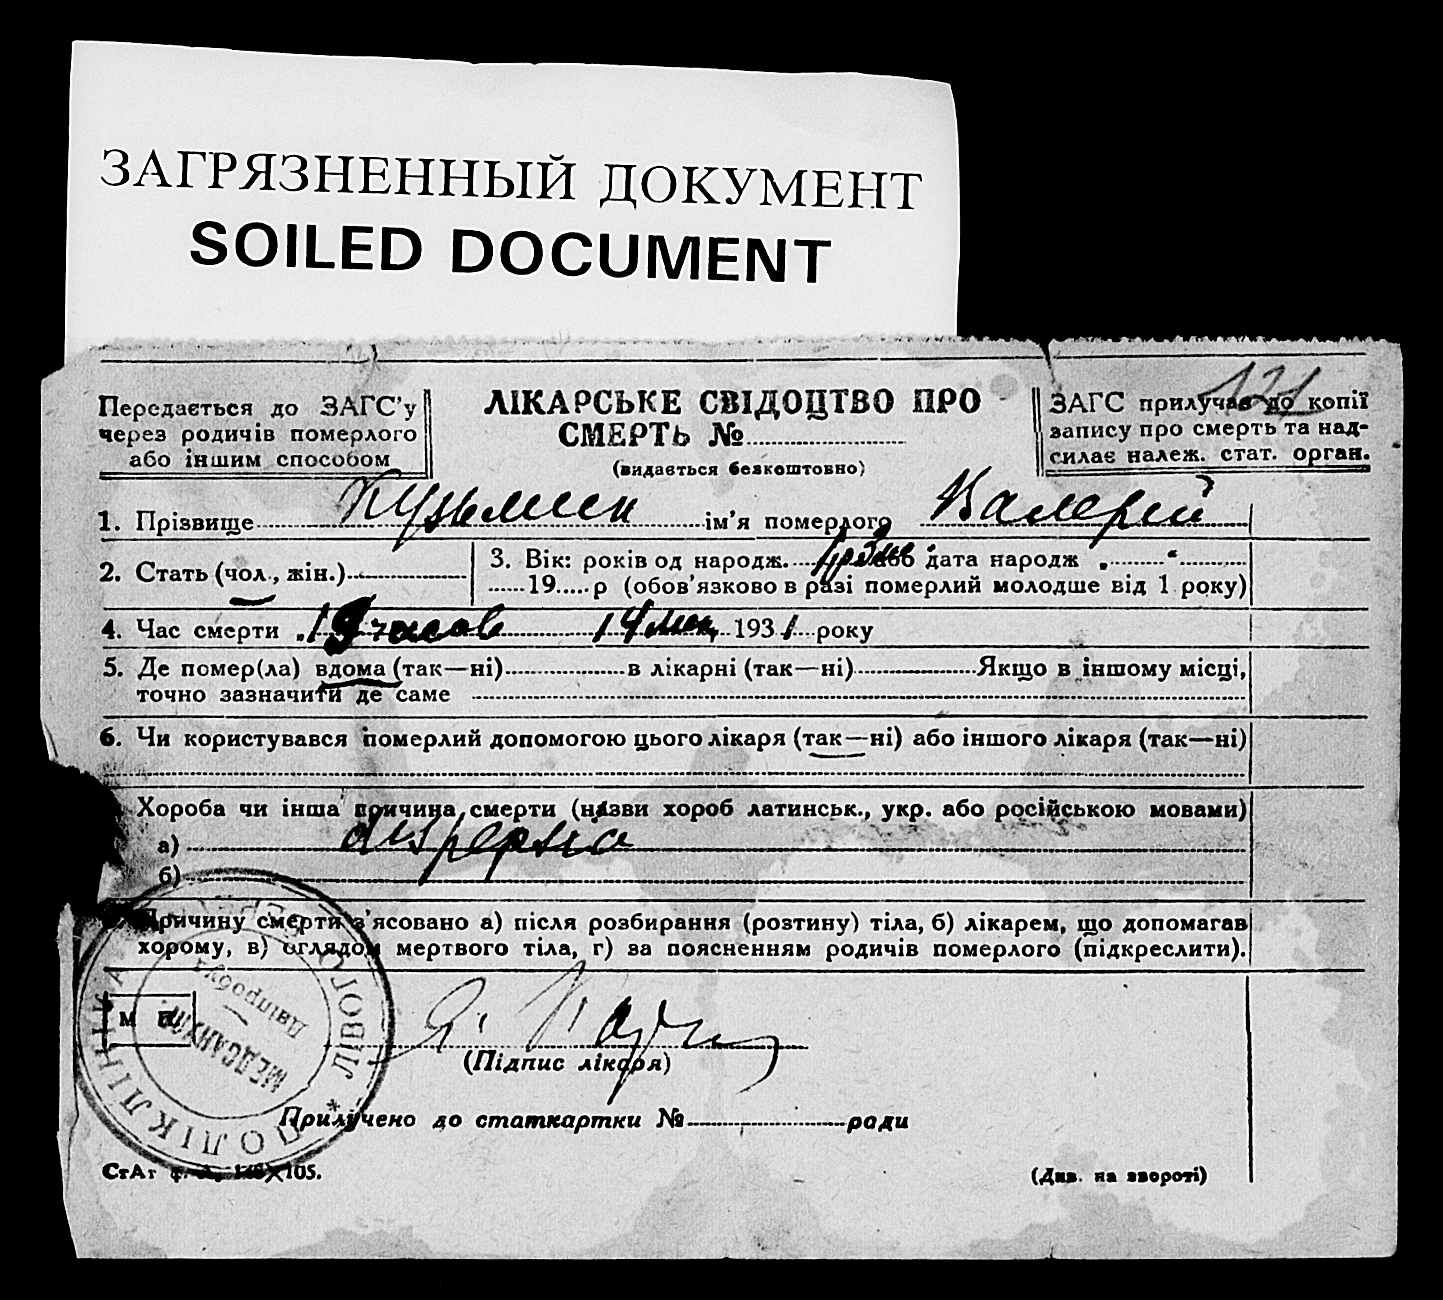 ЗАГРЯЗНЕННЫЙ ДОКУМЕНТ
SOILED DOCUMENT
121
Передається до ЗАГС'у
через родичів померлого
або іншим способом
ЛІКАРСЬКЕ СВІДОЦТВО ПРО
СМЕРТЬ №
(видається безкоштовно)
ЗАГС прилучає до копії
запису про смерть та над-
силає належ. стат. орган.
1. Прізвище Кузьмин ім'я померлого Валерій
2. Стать (чол., жін.)
3. Вік: років од народж. або дата народж „ “
19 р (обов'язково в разі померлий молодше від 1 року)
4. Час смерти 19 часов 14 1931 року
5. Де помер(ла) вдома (так—ні) в лікарні (так—ні) Якщо в іншому місці,
точно зазначити де саме
6. Чи користувався померлий допомогою цього лікаря (так—ні) або іншого лікаря (так—ні)
Хороба чи інша причина смерти (назви хороб латинськ., укр. або російською мовами)
а) dispepsia
б)
Причину смерти з'ясовано а) після розбирання (розтину) тіла, б) лікарем, що допомагав
хорому, в) оглядом мертвого тіла, г) за поясненням родичів померлого (підкреслити).
М П
ПОЛІКЛІНІКА
МЕДСАНУПР.
(Підпис лікаря)
Прилучено до статкартки № ради
СтАт ф. 105.
(Див. на звороті)